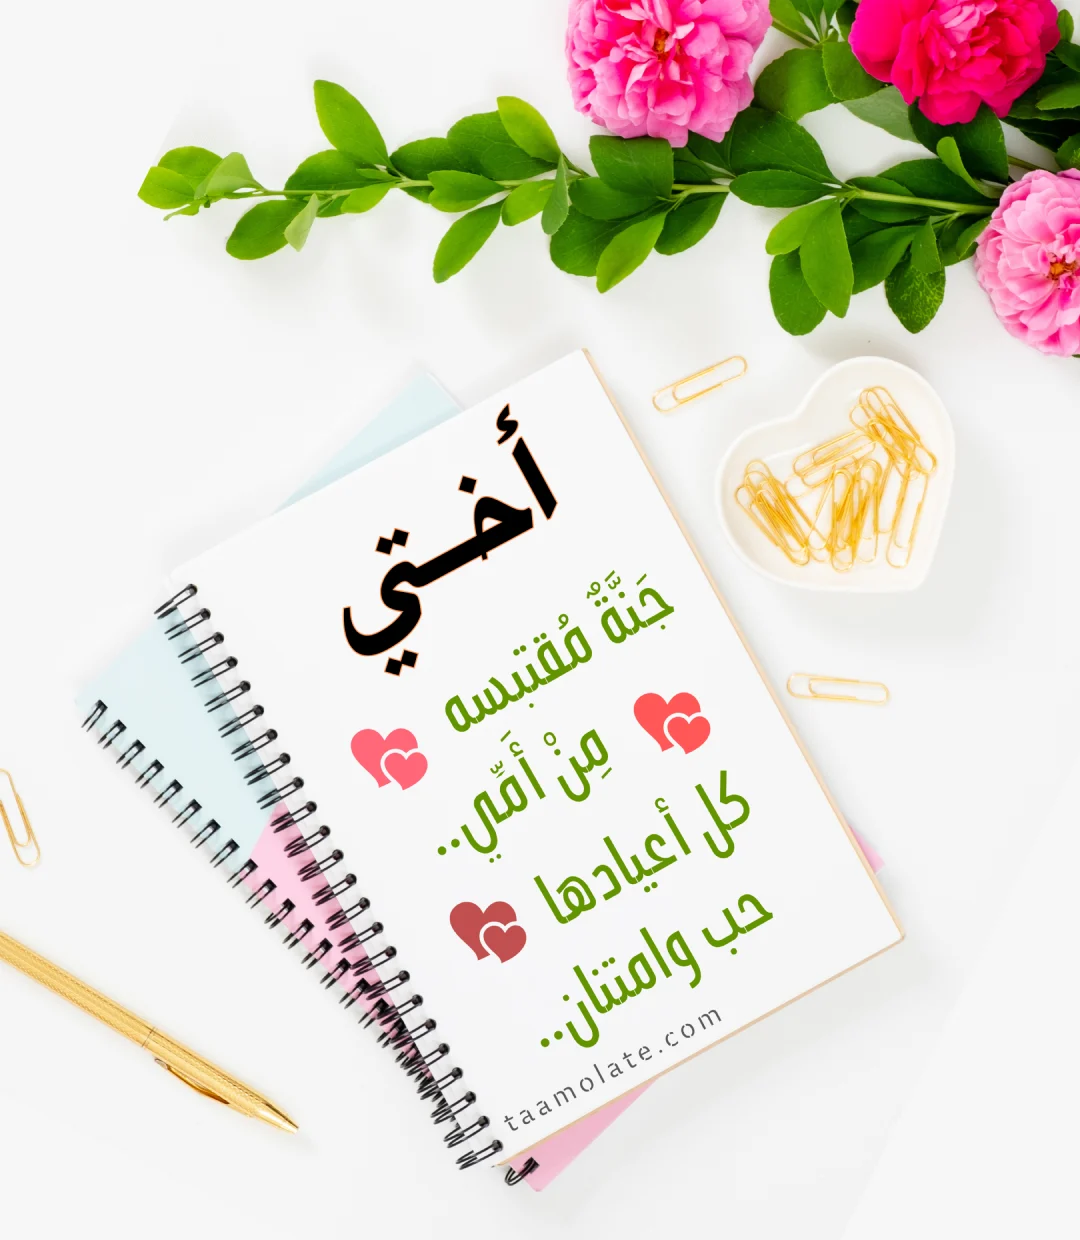 أختي
جَنَّةٌ مُقتبسه
مِنْ أَمِّي..
كل أعيادها
حب وامتنان..
taamolate.com